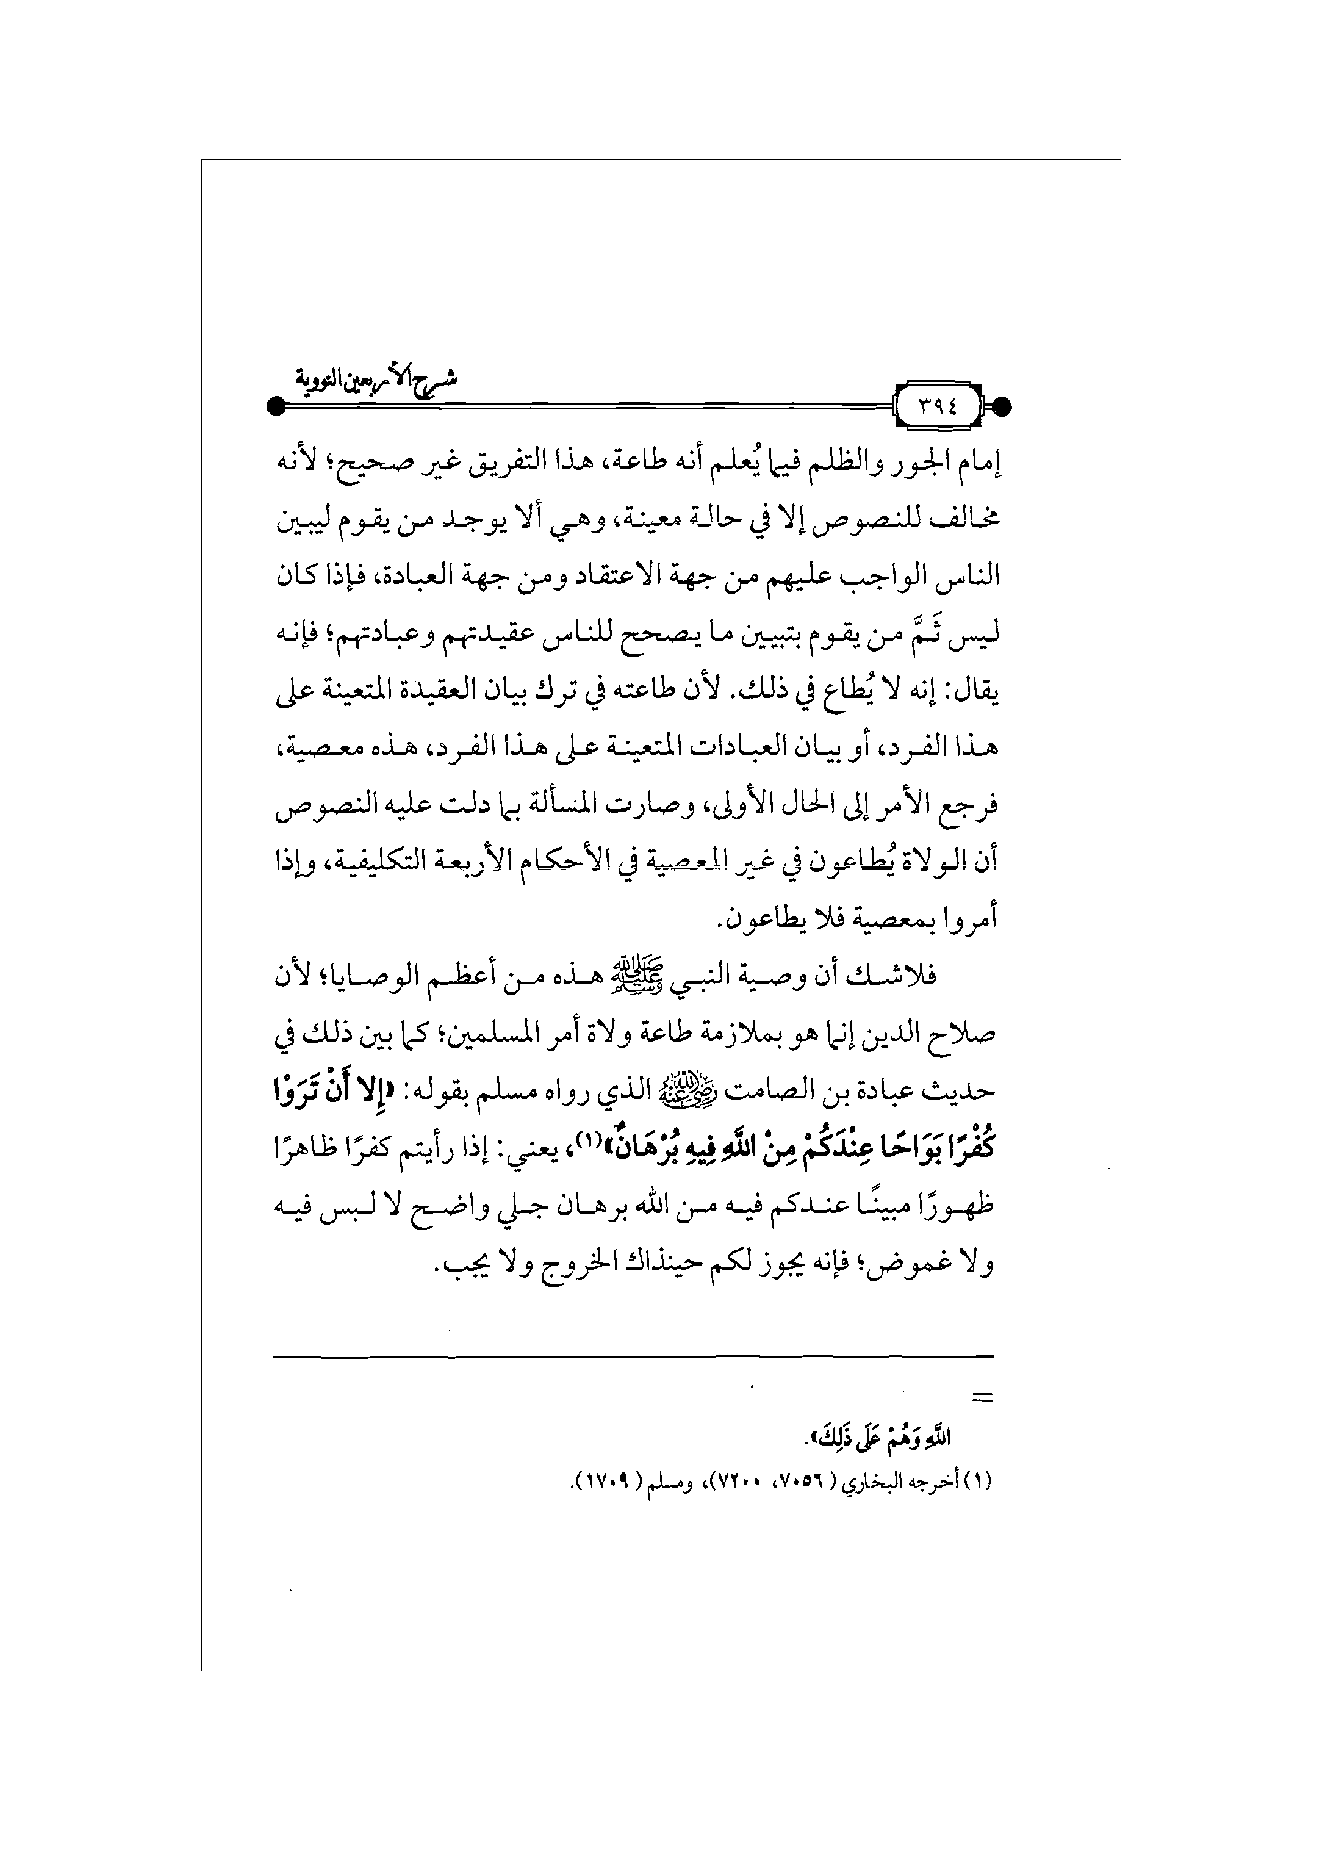 شرح الأربعين النووية
٣٩٤
إمام الجور والظلم فيما يُعلم أنه طاعة، هذا التفريق غير صحيح؛ لأنه
مخالف للنصوص إلا في حالة معينة، وهي ألا يوجد من يقوم ليبين
الناس الواجب عليهم من جهة الاعتقاد ومن جهة العبادة، فإذا كان
ليس ثَمَّ من يقوم بتبيين ما يصحح للناس عقيدتهم وعبادتهم؛ فإنه
يقال: إنه لا يُطاع في ذلك. لأن طاعته في ترك بيان العقيدة المتعينة على
هذا الفرد، أو بيان العبادات المتعينة على هذا الفرد، هذه معصية،
فرجع الأمر إلى الحال الأولى، وصارت المسألة بما دلت عليه النصوص
أن الولاة يُطاعون في غير المعصية في الأحكام الأربعة التكليفية، وإذا
أمروا بمعصية فلا يطاعون.
فلاشك أن وصية النبي ﷺ هذه من أعظم الوصايا؛ لأن
صلاح الدين إنما هو بملازمة طاعة ولاة أمر المسلمين؛ كما بين ذلك في
حديث عبادة بن الصامت رضي الله عنه الذي رواه مسلم بقوله: «إِلا أَنْ تَرَوْا
كُفْرًا بَوَاحًا عِنْدَكُمْ مِنْ اللَّهِ فِيهِ بُرْهَانٌ»(١)، يعني: إذا رأيتم كفرًا ظاهرًا
ظهورًا مبينًا عندكم فيه من الله برهان جلي واضح لا لبس فيه
ولا غموض؛ فإنه يجوز لكم حينذاك الخروج ولا يجب.
=
اللَّهِ وَهُمْ عَلَى ذَلِكَ».
(١) أخرجه البخاري (٧٠٥٦، ٧٢٠٠)، ومسلم (١٧٠٩).